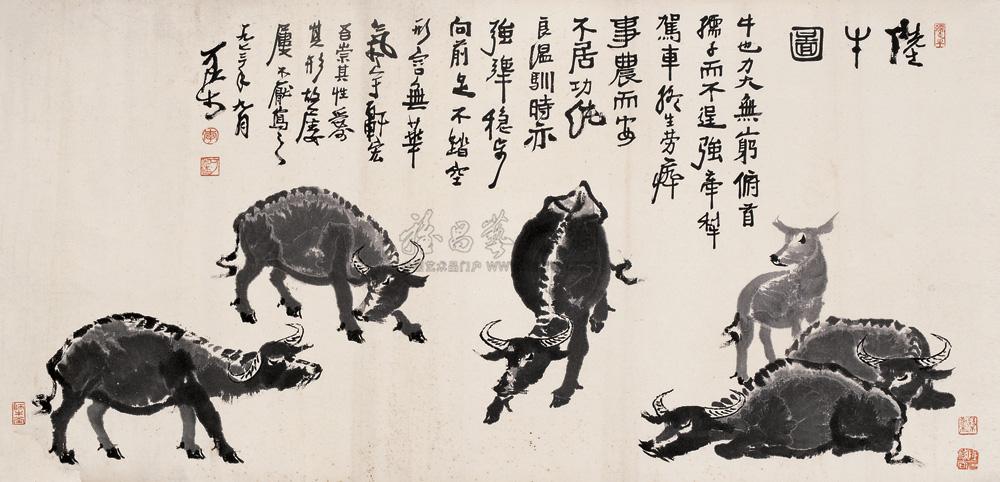 陸牛圖
牛也力大無窮俯首
孺子而不逞強牽犁
駕車終生勞瘁
事農而安
不居功純
良溫馴時亦
強犟穩步
向前足不踏空
形容無華
氣宇軒宏
吾崇其性愛
其形故屢
屢不厭寫之
年九月
可染
艺术品门户 WWW